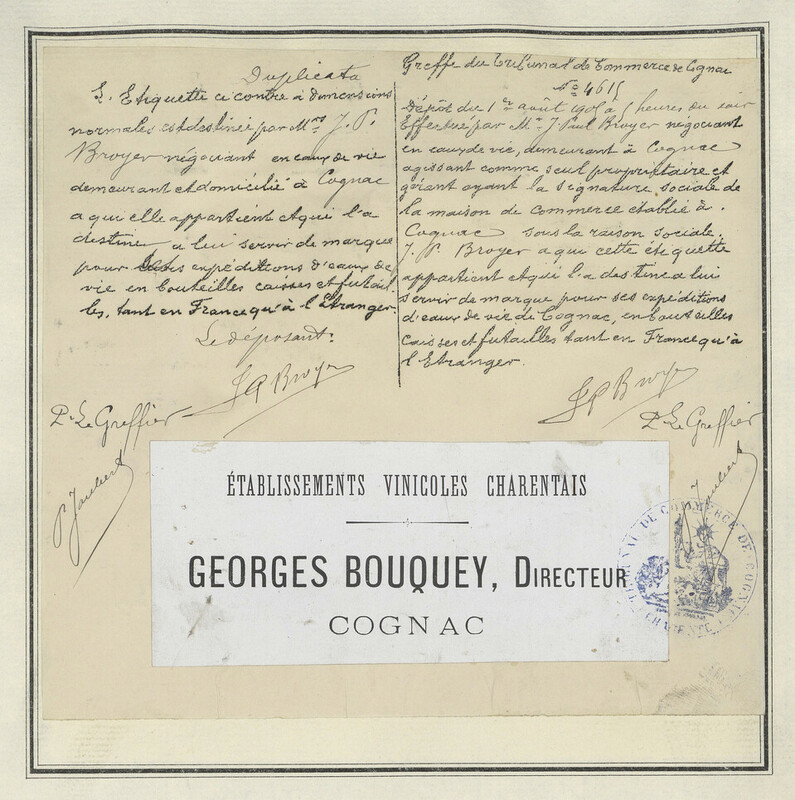 Duplicata
L'Etiquette ci contre à dimensions
normales est destinée par Mr J. P.
Broyer négociant en eaux de vie
demeurant et domicilié à Cognac
a qui elle appartient et qui l'a
destine a lui servir de marque
pour ses expéditions d'eaux de
vie en bouteilles caisses et futail
les, tant en France qu'à l'Etranger.
Le déposant:
J P Broyer
Pr Le Greffier
P. Jaubert
Greffe du Tribunal de Commerce de Cognac
No 4615
Dépôt du 1er août à heures du soir
Effectué par Mr J. Paul Broyer négociant
en eaux de vie, demeurant à Cognac
agissant comme seul propriétaire et
gérant ayant la signature sociale de
la maison de commerce établie à
Cognac sous la raison sociale.
J. P. Broyer a qui cette étiquette
appartient et qui l'a destine a lui
servir de marque pour ses expéditions
d'eaux de vie de Cognac, en bouteilles
caisses et futailles tant en France qu'à
l'Etranger.
J P Broyer
Pr Le Greffier
Jaubert
ÉTABLISSEMENTS VINICOLES CHARENTAIS
GEORGES BOUQUEY, DIRECTEUR
COGNAC
TRIBUNAL DE COMMERCE DE COGNAC
CHARENTE